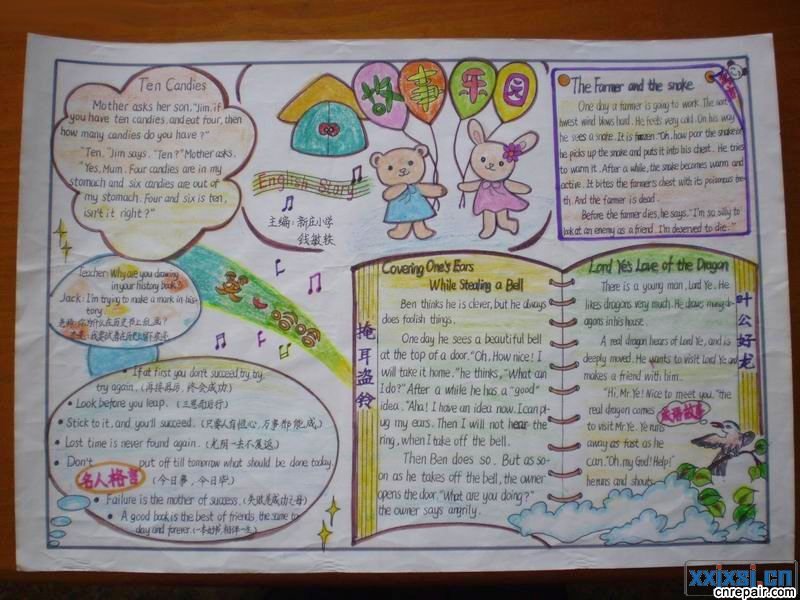 Ten Candies
Mother asks her son, "Jim, if
you have ten candies, and eat four, then
how many candies do you have?"
"Ten," Jim says. "Ten?" Mother asks.
"Yes, Mum. Four candies are in my
stomach and six candies are out of
my stomach. Four and six is ten,
isn't it right?"
故事乐园
English Story
主编：新庄小学
钱敏轶
The Farmer and the snake
One day a farmer is going to work. The nort
hwest wind blows hard. He feels very cold. On his way
he sees a snake. It is frozen. "Oh, how poor the snake is!"
he picks up the snake and puts it into his chest. He tries
to warm it. After a while, the snake becomes warm and
active. It bites the farmer's chest with its poisonous tee
th. And the farmer is dead.
Before the farmer dies, he says, "I'm so silly to
look at an enemy as a friend. I'm deserved to die."
Teacher: Why are you drawing
in your history book?
Jack: I'm trying to make a mark in his-
tory.
老师：你为什么在历史书上乱画？
英
If at first you don't succeed, try, try,
try again. (再接再历，终会成功)
Look before you leap. (三思而后行)
Stick to it, and you'll succeed. (只要人有恒心，万事都能成。)
Lost time is never found again. (光阴一去不复返)
Don't put off till tomorrow what should be done today.
名人格言
(今日事，今日毕)
Failure is the mother of success. (失败是成功之母)
A good book is the best of friends the same to-
day and forever. (一本好书，相伴一生)
掩耳盗铃
Covering One's Ears
While Stealing a Bell
Ben thinks he is clever, but he always
does foolish things.
One day he sees a beautiful bell
at the top of a door. "Oh, How nice! I
will take it home." he thinks, "What can
I do?" After a while he has a "good"
idea. "Aha! I have an idea now. I can plug
my ears. Then I will not hear the
ring, when I take off the bell.
Then Ben does so. But as so-
on as he takes off the bell, the owner
opens the door. "What are you doing?"
the owner says angrily.
Lord Ye's Love of the Dragon
There is a young man, Lord Ye. He
likes dragons very much. He draws many dr
agons in his house.
A real dragon hears of Lord Ye, and is
deeply moved. He wants to visit Lord Ye and
makes a friend with him.
"Hi, Mr Ye! Nice to meet you," the
real dragon comes
to visit Mr Ye. Ye runs
away as fast as he
can. "Oh, my God! Help!"
he runs and shouts.
成语故事
叶公好龙
xxixsi.cn
cnrepair.com